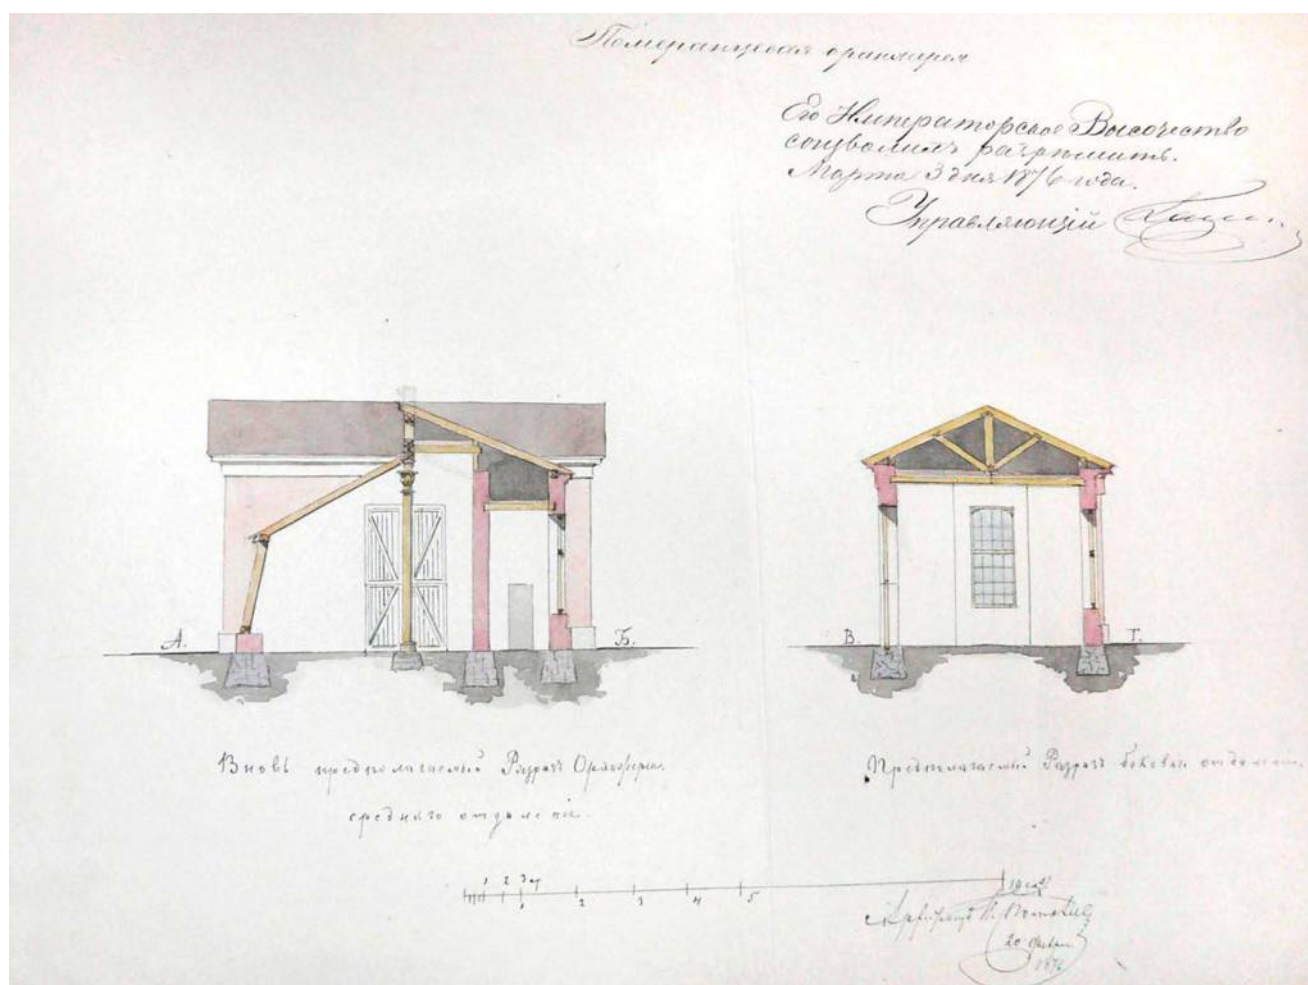 Померанцевая оранжерея
Его Императорское Высочество
соизволилъ разрѣшить.
Марта 3 дня 1876 года.
Управляющій
А. Б. В. Г.
Вновь предполагаемый Разрѣзъ Оранжереи.
средняго отдѣленія.
Предполагаемый Разрѣзъ боковаго
1 2 3
1 2 3 4 5 10
20
1876